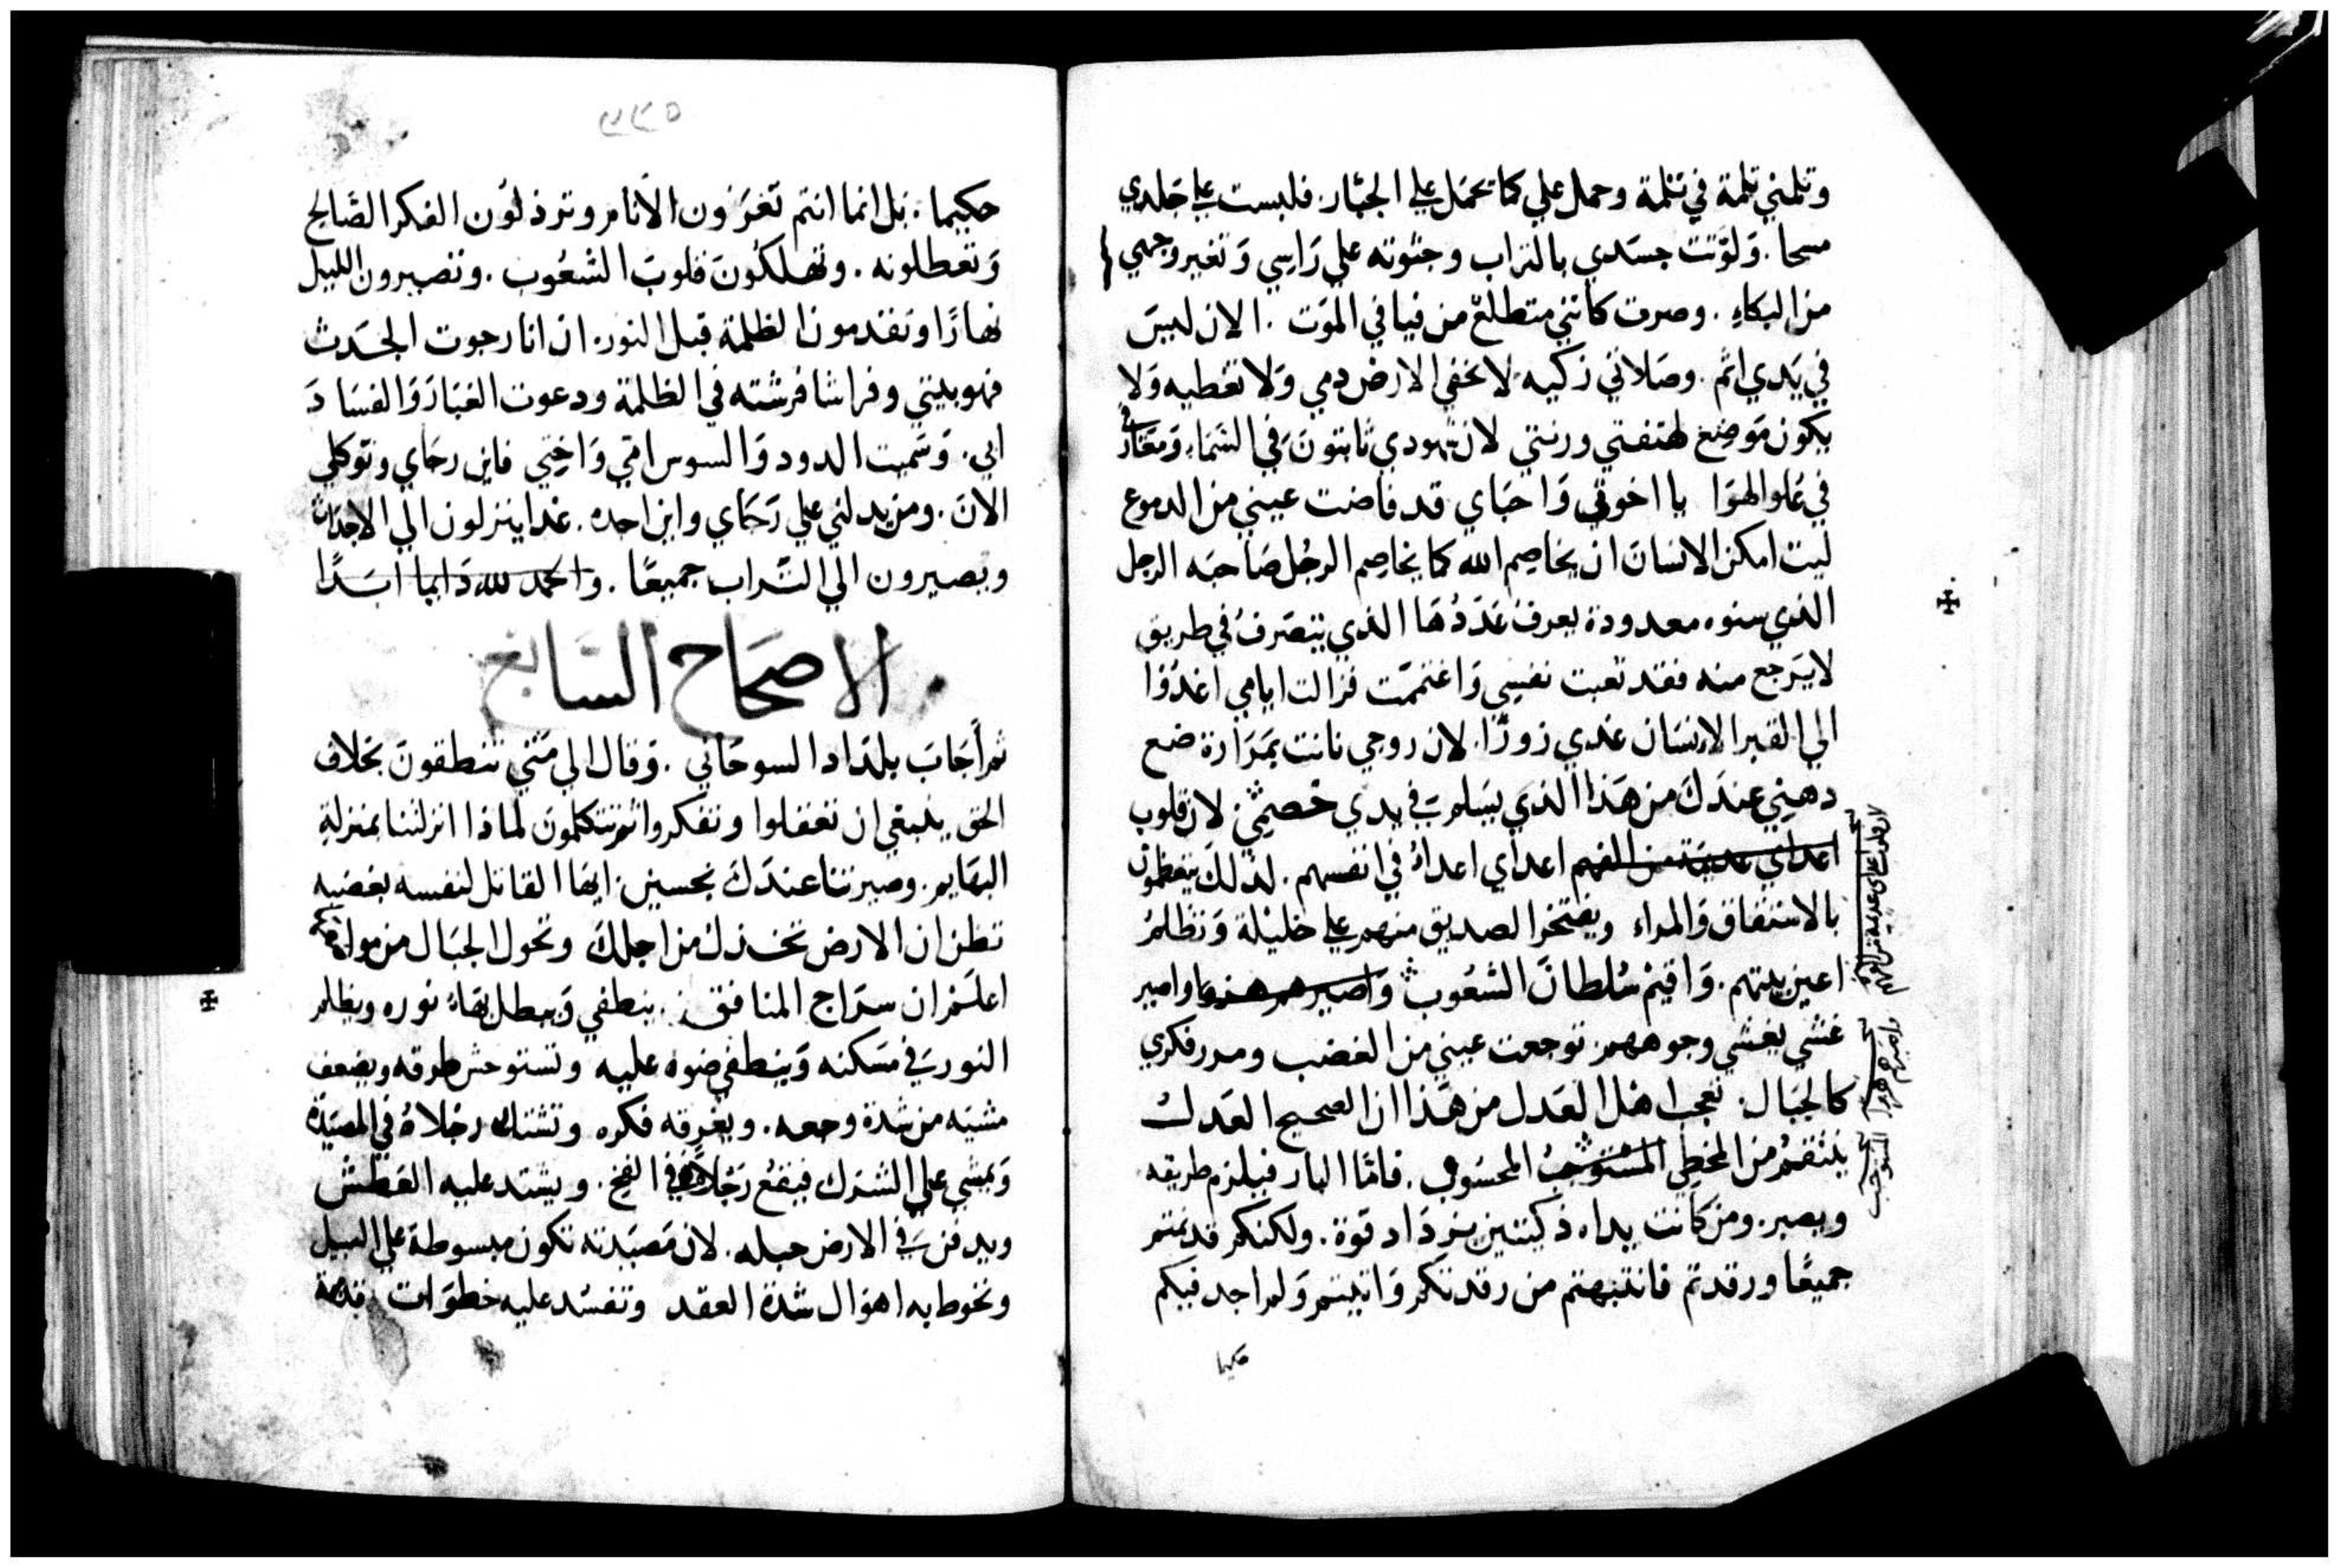 وثلمني ثلمة في ثلمة وحمل علي كما تحمل علي الجبار. فلبست علي جلدي
مسحا. وَلوَّثت جسَدي بالتراب وحثوته علي رَاسي وَتغير وجهي
من البكاءِ. وصرت كانني متطلع من فيافي الموَت. الان ليسَ
في يَدي اثم. وصَلاتي زكيه لا تخفي الارض دمي وَلا تغطيه وَلا
يكون مَوضِع لهتفتي ورنتي لان شهودي ثابتونَ في السَماءِ وَمعَارفي
في عُلو الهوَا يا اخوتي وَاحبَاي قد فاضت عيني من الدموع
ليت امكن الانسَانَ ان يخاصِم الله كما يخاصِم الرجُل صَاحبَه الرجل
الذي سنوه معدودة يعرف عَدَدُهَا الذي يتصَرفُ في طريق
لا يَرجع منه فقد تعبت نفسِي وَاغتممّت فزالت ايامي اغدُوا
الي القبر الانسَان عندي زورًا. لان روحي بَمرَارة ضع
دهِني عندَكَ من هَذا الذي يسَلم في يدي خصمي. لان قلوب
اعداي عديمَة من الفهم اعداي اعداءُ في انفسهم. لذلكَ يتعظمون
بالاستقاق وَالمراء ويفتخر الصديق منهم علي خليله وَتظلمُ
اعين بيتهم. وَاقيمُ سُلطانَ الشعُوب وَاصيرهم هزوا واصير
غشي يغشي وجوههم توجعت عيني من الغضب ومدر فكري
كالجبَال. تعجب اهْل العَدل من هَذا ان الصحيح العَدلُ
ينتقمُ من المخطِي المسْتوجبُ المحسَوب. فامّا البار فيلزم طريقه
ويصبر. ومن كانت يداه ذكيتين يزدَاد قوّة. ولكنكم قد نمتم
جميعًا ورقدتم فانتبهتم من رقدتكم وَاتيتم وَلم اجد فيكم
حكيما
لان قلوب اعداي عديمة من الفهم
واصيرهم هزوا
المستوجب
حكيما. بَل انما انتم تَغرَون الاَنام وترذلون الفكر الصَّالح
وَتعطلونه. وتهلكُونَ قلوبَ الشعُوب. وتصيرون الليل
نهارًا وتقدمون الظلمة قبل النور. ان انا رجوت الجدَث
فهو بيتي وفراشا فرشته في الظلمة ودعوت الغبَار وَالفسَادَ
ابي. وَسَميت الدود وَالسوس امّي وَاختي فاين رجَاي وتوكلي
الانَ. ومن يدلني علي رَجَاي واين احده. غدا ينزلون الي الاجداث
ويصيرون الي التراب جميعًا. والحمد لله دَايما ابَدًا
الاصحَاح السَابع
ثم اَجَابَ بلدَاد السوحَاني. وَقال الي مَتي تنطقونَ بخلاف
الحق ينبغي ان تعقلوا وتفكروا ثم تتكلمونَ لماذا انزلتنا بمنزلةِ
البهَايم. وصيرتنا عندَكَ نجسين. ايهَا القاتل لنفسه بغضبه
تظن ان الارض تخذل من اجلكَ وتحول الجبَال من مواضعها
اعلَم ان سرَاج المنافق ينطفي وَيبطل بقاءُ نوره ويظلم
النور في مسَكنه وَينطفي ضوه عليه وتستوحش طرقه ويضعف
مشيَه من شدة وجعه. ويغرقه فكره وتشتبك رجْلاهُ في المصيَدة
وَيمشي علي الشرَك فيقعُ رَجْلاه في الفخ. ويشتد عليه العَطش
ويدفن في الارض حبله. لان مَصيَدته تكون مبسوطة علي السبيل
وتحوط به اهوَال شدة العقد وتفسُد عليه خطوَات قدمه